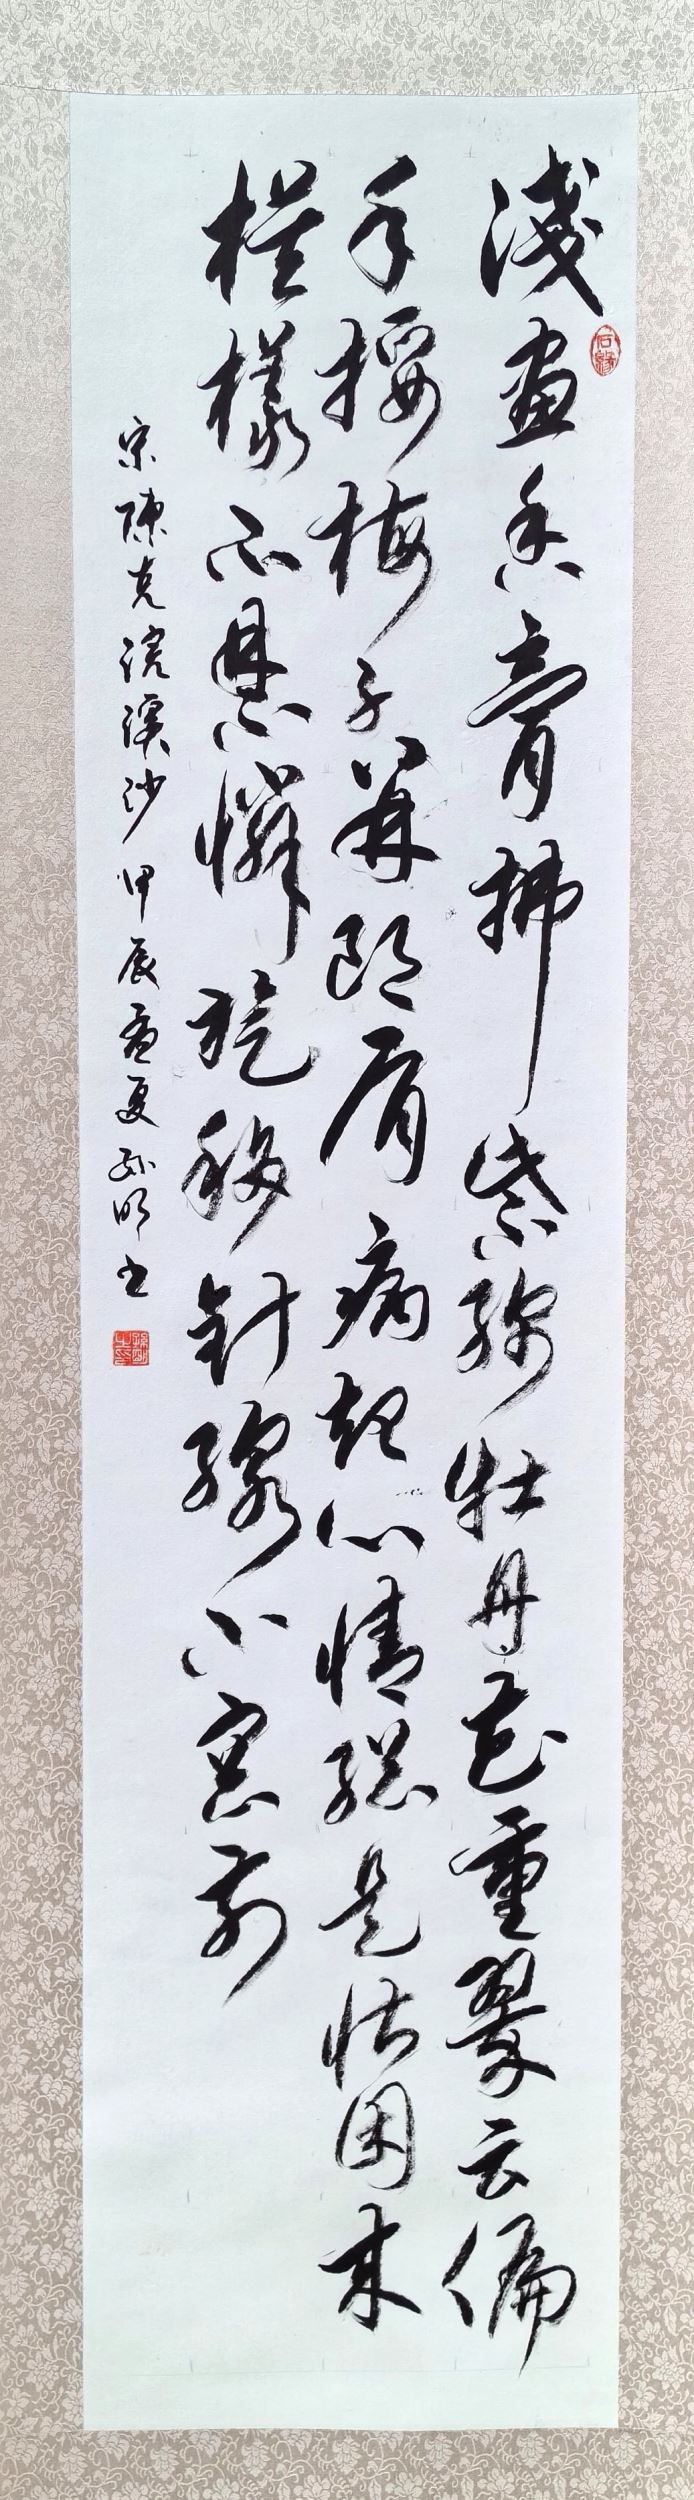 淺畫香膏拂紫綿牡丹花重翠云偏
手挼梅子並郎肩病起心情總是怯困來
模樣不禁憐旋移針線小窗前
宋陳克浣溪沙甲辰孟夏孫明書
石緣